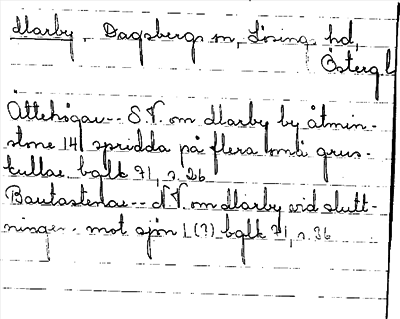 Marby, Dagsbergs sn, Lösings hd,
Östergötl
Ättehögar -- S.V. om Marby by åtmin-
stone 14 spridda på flera små grus-
kullar bglk 71, s. 26
Bautastenar -- N.V. om Marby vid slutt-
ningen mot sjön 1 (?) bglk 71, s. 36